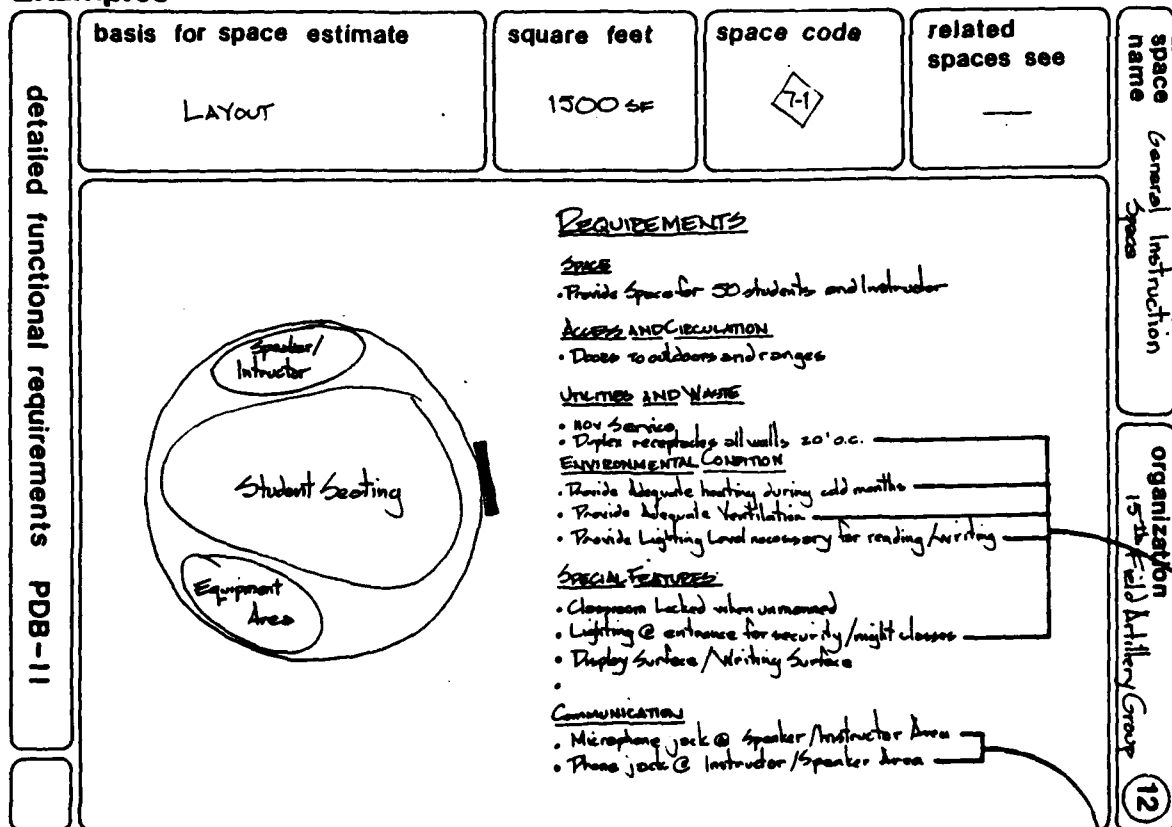 basis for space estimate
LAYOUT
square feet
1500 SF
space code
7-1
related
spaces see
—
space
name
General Instruction
Space
organization
15th Field Artillery Group
12
detailed functional requirements PDB-11
Speaker/
Intructor
Student Seating
Equipment
Area
REQUIREMENTS
SPACE
• Provide Space for 50 students and Instructor
ACCESS AND CIRCULATION
• Doors to outdoors and ranges
UTILITIES AND WASTE
• 110V Service
• Duplex receptacles all walls 20' o.c.
ENVIRONMENTAL CONDITION
• Provide Adequate heating during cold months
• Provide Adequate Ventilation
• Provide Lighting Level necessary for reading/writing
SPECIAL FEATURES
• Classroom Locked when unmanned
• Lighting @ entrance for security/night classes
• Display Surface/Writing Surface
•
COMMUNICATION
• Microphone jack @ Speaker/Instructor Area
• Phone jack @ Instructor/Speaker Area